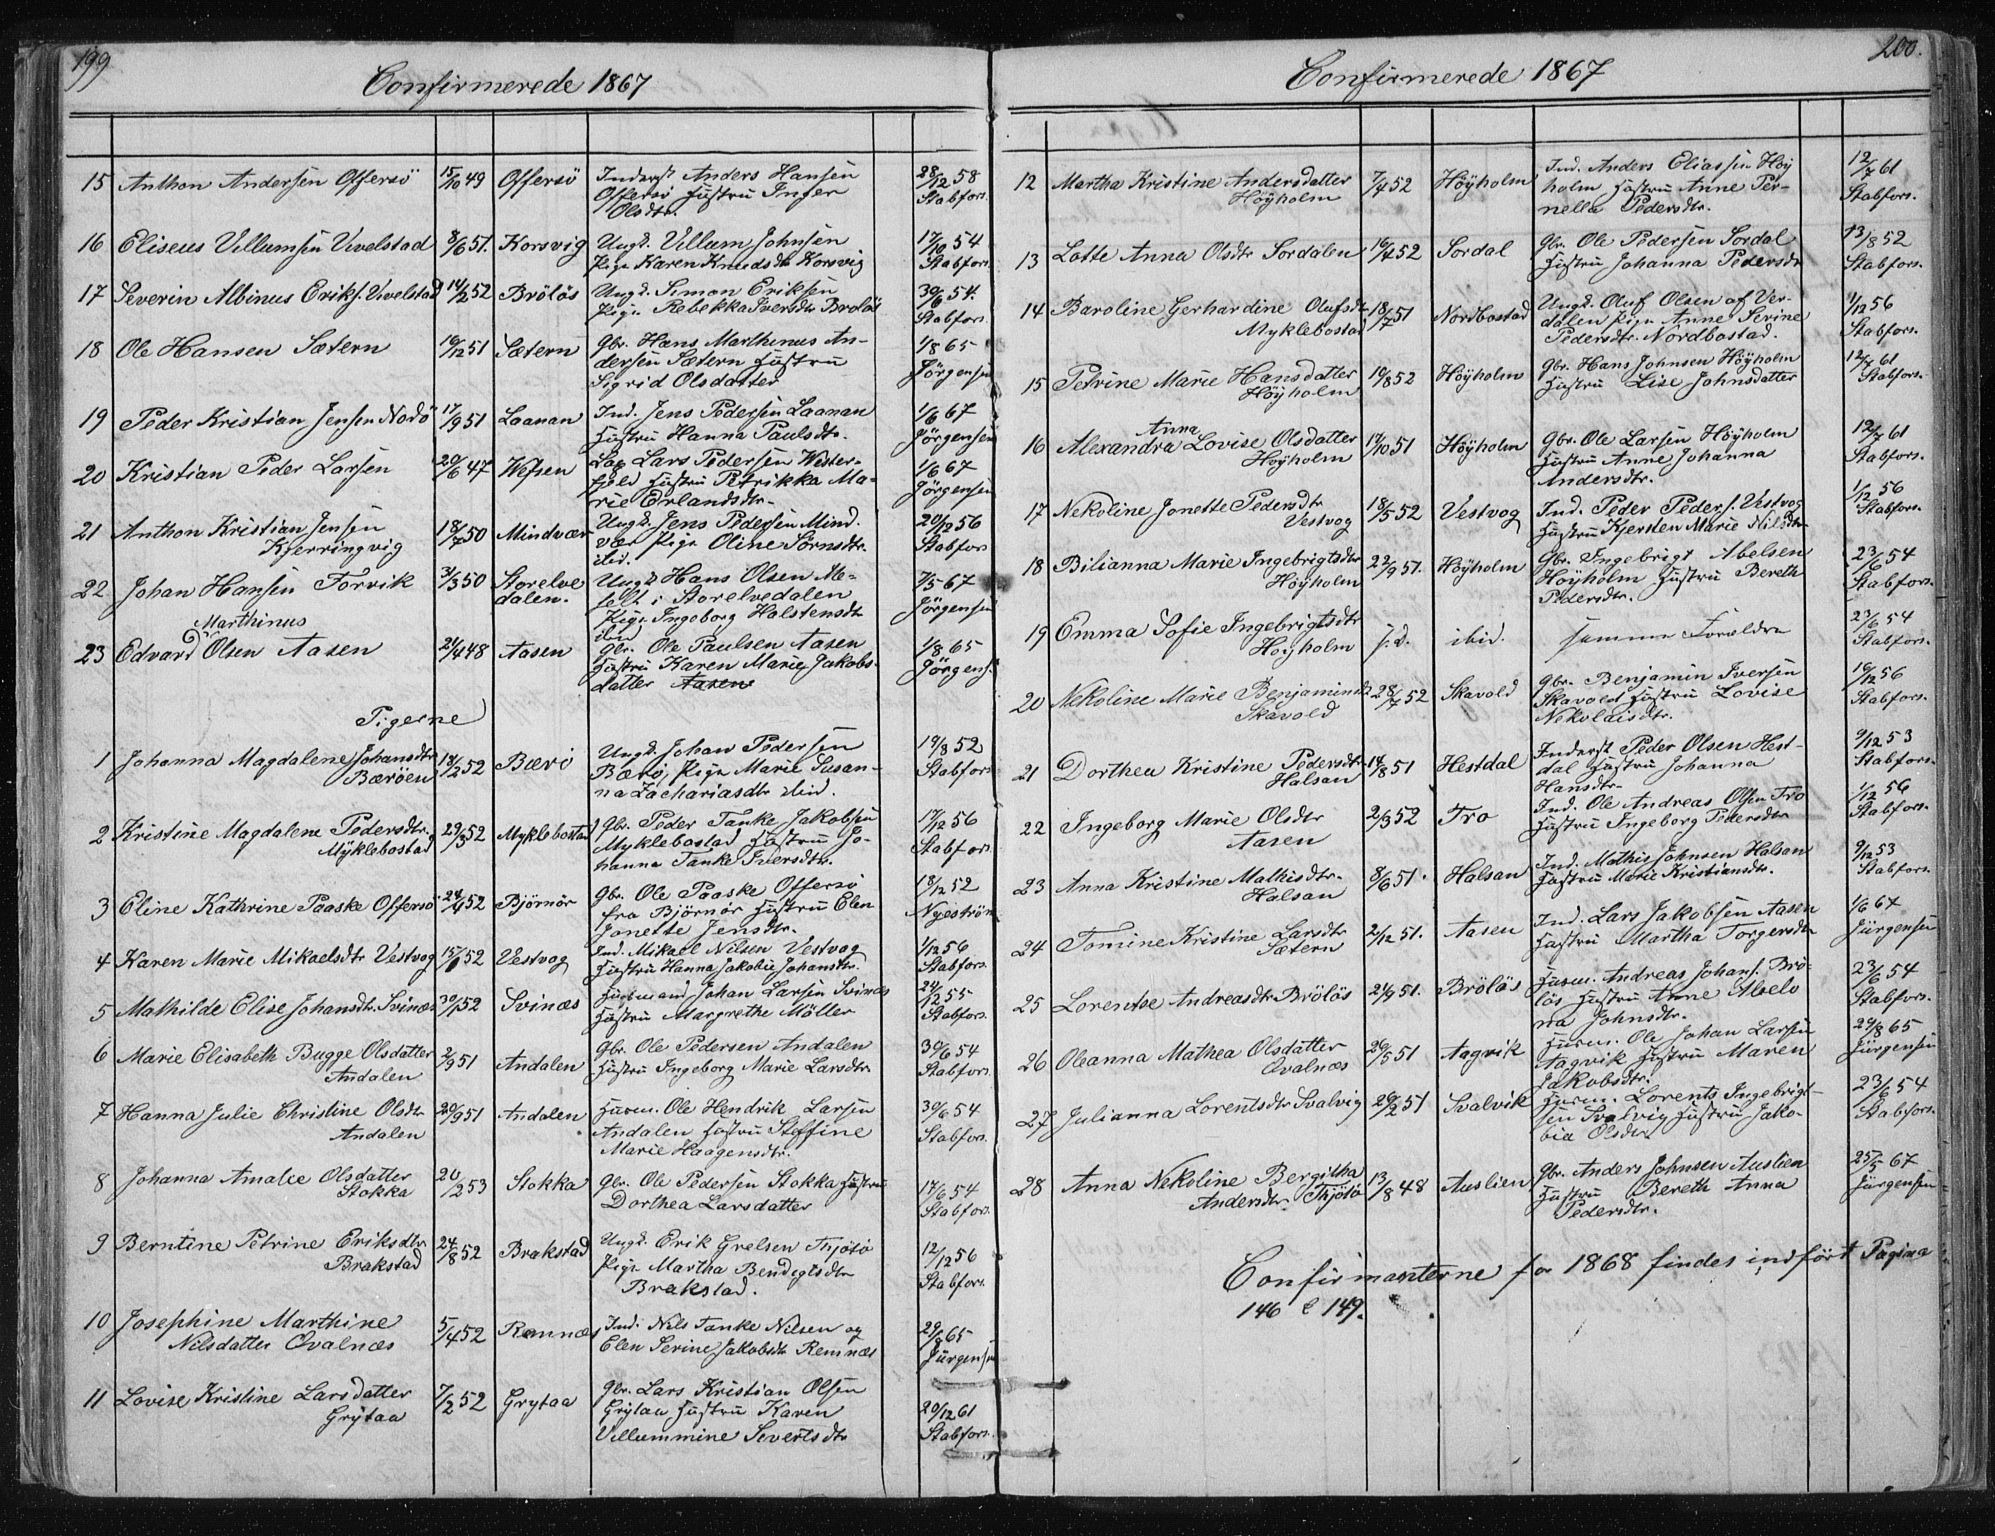 199
Confirmerede 1867
15 Anthon Andersen Offersö 15/10 49 Offersö Inderst Anders Hansen 28/12 58
Offersö Hustru Inger Stabfors.
Olsdtr.
16 Eliseus Villumsen Vivelstad 8/6 51. Korsvig Ungk. Villum Johnsen 17/10 54
Pige Karen Knudsdtr Korsvig Stabfors.
17 Severin Albinus Eriks. Vivelstad 14/2 52 Brölös Ungk. Simon Eriksen 30/6 54.
Pige Rebekka Iversdtr Brölös Stabfors.
18 Ole Hansen Sætern 16/12 51 Sætern Gbr. Hans Marthinus An- 1/8 65
dersen Sætern Hustru Jörgensen
Sigrid Olsdatter
19 Peder Kristian Jensen Nodö 17/9 51 Laanan Ind. Jens Pedersen Laanan 1/6 67
Hustru Hanna Paulsdtr. Jörgensen
20 Kristian Peder Larsen 20/6 47 Vefsen Lap Lars Pedersen Wester- 1/6 67
fjeld Hustru Petrikka Ma- Jörgensen
rie Erlandsdtr.
21 Anthon Kristian Jensen 18/7 50 Mindvær Ungk. Jens Pedersen Mind. 20/12 56
Kjerringvig vær Pige Oline Sörnsdtr. Stabfors
ibid.
22 Johan Hansen Forvik 31/3 50 Storelve Ungk Hans Olsen
dalen. i Storelvedalen 7/5 67
Pige Ingeborg Halstensdtr Jörgensen
Marthinus
23 Edvard Olsen Aasen 24/4 48 Aasen Gbr. Ole Paulsen Aasen 1/8 65
Hustru Karen Marie Jakobs- Jörgens.
datter Aasen
Pigerne
1 Johanna Magdalene Johansdtr 18/2 52 Bærö Ungk. Johan Pedersen 19/8 52
Bæröen Bærö, Pige Marie Susan- Stabfors
na Zachariasdtr ibid.
2 Kristine Magdalene Pedersdtr. 29/3 52 Myklebostad Gbr. Peder Tanke Jakobsen 17/12 56
Myklebostad Myklebostad Hustru Jo- Stabfors.
hanna Tanke Iversdtr.
3 Eline Kathrine Paaske Offersö 24/4 52 Björnör Gbr. Ole Paaske Offersö 18/12 52
fra Björnör Hustru Elen Nyeström
Jonette Jensdtr.
4 Karen Marie Mikaelsdtr Vestvog 15/1 52 Vestvog Ind. Mikael Nilsen Vestvog 1/12 56
Hustru Hanna Jakobie Johansdtr. Stabfors.
5 Mathilde Elise Johansdtr. Svinæs 30/1 52 Svinæs Husmand Johan Larsen Svinæs 24/12 55
Hustru Margrethe Möller Stabfors.
6 Marie Elisabeth Bugge Olsdatter 2/9 51 Andalen Gbr. Ole Pedersen Andalen 30/6 54
Andalen Hustru Ingeborg Marie Larsdtr. Stabfors.
7 Hanna Julie Christine Olsdtr 20/9 51 Andalen Husm. Ole Hendrik Larsen 30/6 54
Andalen Andalen Hustru Steffine Stabfors.
Marie Haagensdtr.
8 Johanna Amalie Olsdatter 20/2 53 Stokka Gbr. Ole Pedersen Stokka Hustru 17/6 54
Stokka Dorthea Larsdatter Stabfors.
9 Berntine Petrine Eriksdtr 24/8 52 Brakstad Ungk. Erik Grelsen Thjötö 12/12 56
Brakstad Pige Martha Bendigtsdtr Stabfors.
Brakstad.
10 Josephine Marthine 5/4 52 Remnæs Ind. Nils Tanke Nilsen og 29/8 65
Nilsdatter Qvalnæs Elen Serine Jakobsdtr Remnæs Jürgensen
11 Lovise Kristine Larsdatter 7/2 52 Grytaa Gbr. Lars Kristian Olsen 20/12 61
Grytaa Grytaa Hustru Karen Stabfors.
Villummine Severtsdtr
200.
Confirmerede 1867
12 Martha Kristine Andersdatter 7/4 52 Höyholm Ind. Anders Eliassen Höy 12/7 61
Höyholm holm, Hustru Anne Per- Stabfors.
nella Pedersdtr.
13 Lotte Anna Olsdtr Sordalen 16/4 52 Sordal Gbr. Ole Pedersen Sordal 13/8 52
Hustru Johanna Pedersdtr Stabfors.
14 Baroline Gerhardine Olufsdtr 18/7 51 Nordbostad Ungk. Oluf Olsen af Ver- 1/12 56
Myklebostad dalen Pige Anne Serine Stabfors.
Pedersdtr. Nordbostad.
15 Petrine Marie Hansdatter 19/8 52 Höyholm Gbr. Hans Johnsen Höyholm 12/7 61
Höyholm Hustru Lise Johnsdatter Stabfors.
Anna
16 Alexandra Lovise Olsdatter 17/10 51 Höyholm Gbr. Ole Larsen Höyholm 12/7 61
Höyholm Hustru Anne Johanna Stabfors.
Andersdtr.
17 Nekoline Jonette Pedersdtr 18/5 52 Vestvog Ind. Peder Peders. Vestvog 1/12 56
Vestvog Hustru Kjersten Marie Nilsdtr Stabfors.
18 Bilianna Marie Ingebrigtsdtr 22/9 51. Höyholm Gbr. Ingebrigt Abelsen 23/6 54
Höyholm Höyholm, Hustru Bereth Stabfors.
Pedersdtr.
19 Emma Sofie Ingebrigtsdtr s.d. ibid. samme Forældre 23/6 54
Höyholm Stabfors.
20 Nekoline Marie Benjaminsdtr 28/7 52 Skavold Gbr. Benjamin Iversen 19/12 56
Skavold Skavold Hustru Lovise Stabfors.
Nekolaisdtr.
21 Dorthea Kristine Pedersdtr 14/8 51 Hestdal Inderst Peder Olsen Hest- 9/12 53
Halsan dal Hustru Johanna Stabfors.
Hansdtr.
22 Ingeborg Marie Olsdtr 2/3 52 Tro Ind. Ole Andreas Olsen Tro 1/12 56
Aasen Hustru Ingeborg Pedersdtr Stabfors.
23 Anna Kristine Mathisdtr. 8/6 51. Halsan Ind. Mathis Johnsen Halsan 9/12 53
Halsan Hustru Marie Kristiansdtr. Stabfors.
24 Tomine Kristine Larsdtr 2/12 51. Aasen Ind. Lars Jakobsen Aasen 1/6 67
Sætern Hustru Martha Torgersdtr Jürgensen
25 Lorentse Andreasdtr Brölös 24/9 51. Brölös Husm. Andreas Johans. Brö- 23/6 54
lös Hustru Anne Stabfors.
na Johnsdtr.
26 Oleanna Mathea Olsdatter 26/5 51 Aagvik Husm. Ole Johan Larsen 29/8 65
Qvalnæs Aagvik Hustru Maren Jürgensen
Jakobsdtr.
27 Julianna Lorentsdtr Svalvig 26/2 51 Svalvik Husm. Lorents Ingebrigt- 23/6 54
sen Svalvig Hustru Jako- Stabfors.
bia Olsdtr
28 Anna Nekoline Bergitha 13/8 48 Auslien Gbr. Anders Johnsen Auslien 25/5 67
Andersdtr. Thjötö Hustru Bereth Anna Jürgensen
Pedersdtr.
Confirmanterne for 1868 findes indfört Pagina
146 & 149.